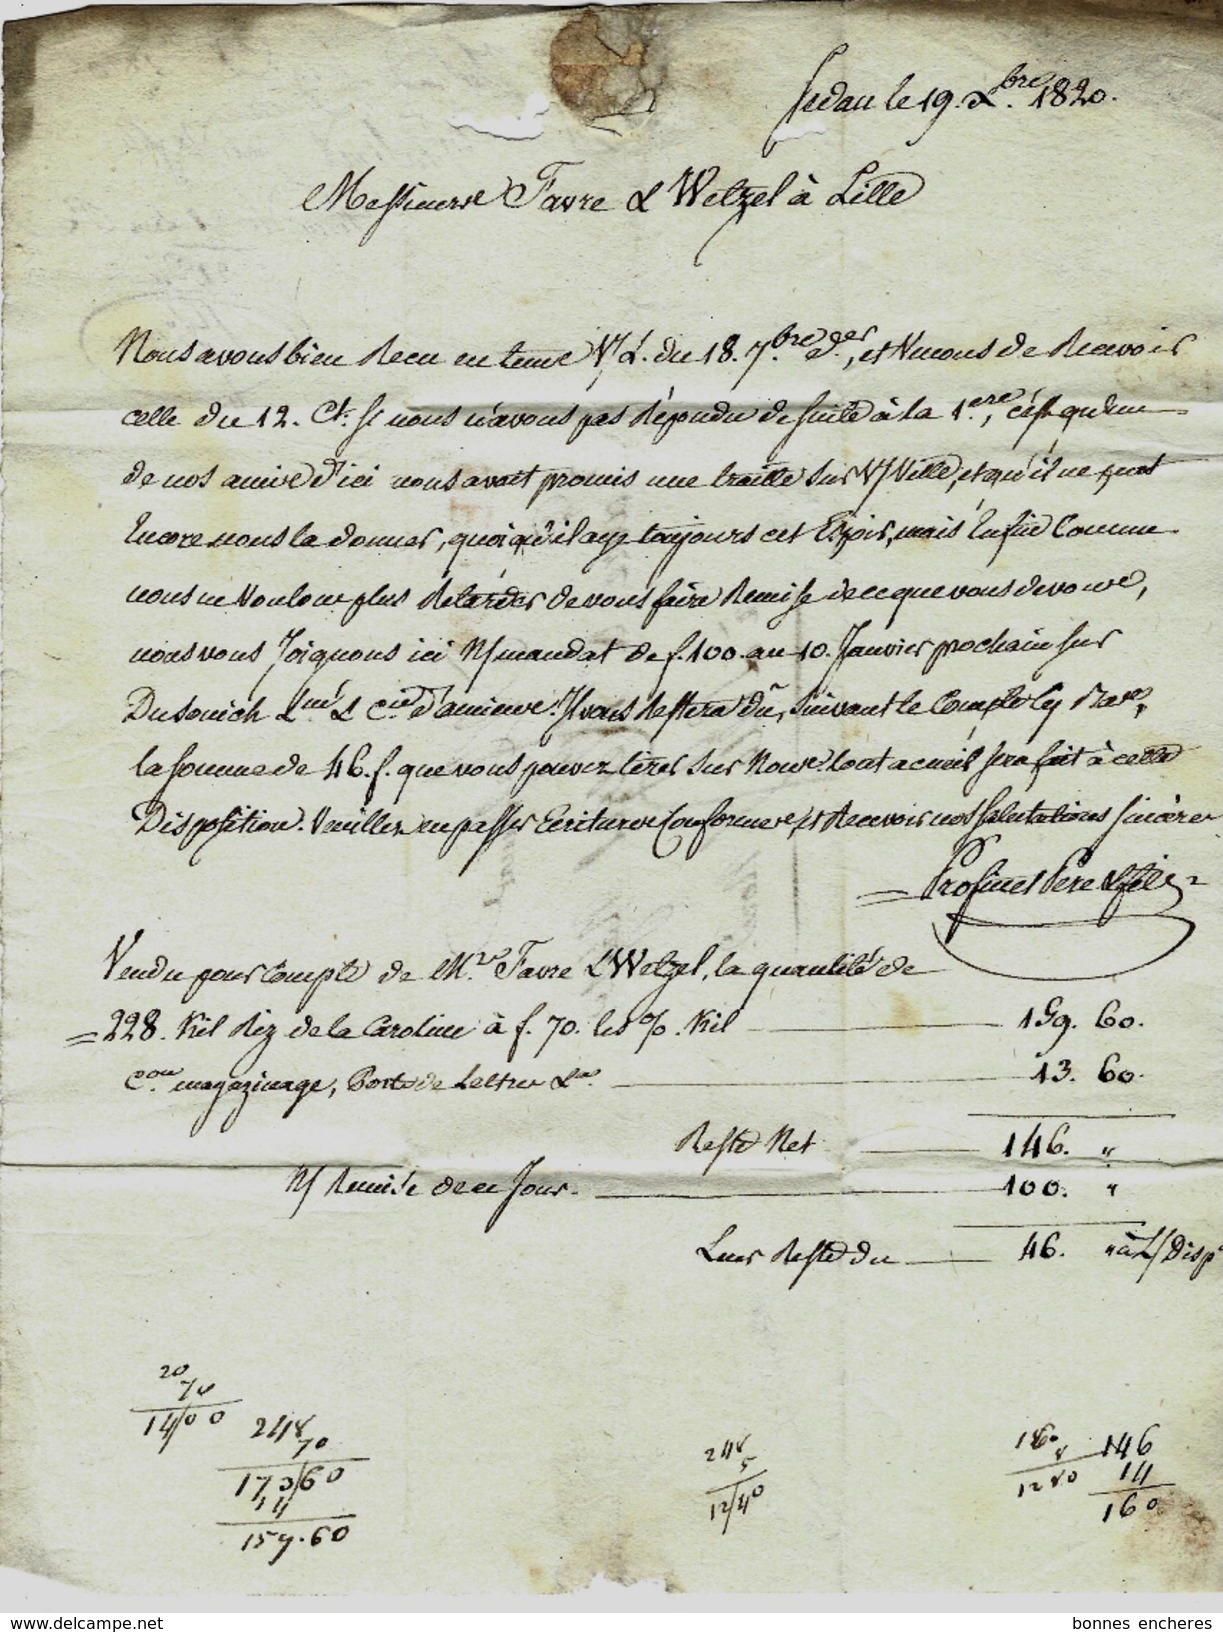 Sedan le 19. Xbre. 1820.
Messieurs Favre & Wetzel à Lille
Nous avons bien Recu en tems V/ L. du 18. 7.bre der, et Venons de Recevoir
celle du 12. Ct. Si nous n'avons pas Répondu de suite à la 1.ere, c'est qu'un
de nos amis d'ici nous avoit promis une traitte sur V/ Ville, et qu'il ne peut
Encore nous la donner, quoiqu'il aye toujours cet Espoir, mais Enfin Comme
nous ne Voulons plus Retarder de vous faire Remise de ce que vous devons,
nous vous Joignons ici N/ mandat de f. 100. au 10. Janvier prochain sur
Dusouich & Cie d'amiens. Il vous Restera dû, suivant le Compte Cy
la somme de 46. f. que vous pouvez tirer sur Nous. tout acueil sera fait à cette
Disposition. Veuillez en passer Ecritures Conformes, et Recevoir nos salutations sincères
Profinet Père & fils
Vendu pour Compte de Mrs Favre & Wetzel, la quantité de
228. Kil Riz de la Caroline à f. 70. les %. Kil 159. 60.
Con magazinage, Ports de Lettres &a. 13. 60.
Reste Net 146. "
N/ Remise de ce Jour. 100. "
Leur Reste du 46. " à L/ Disp
20
70
14/00
248
70
170/60
14
159.60
248
5
12/40
160
8
1280
146
14
160
www.delcampe.net
bonnes encheres